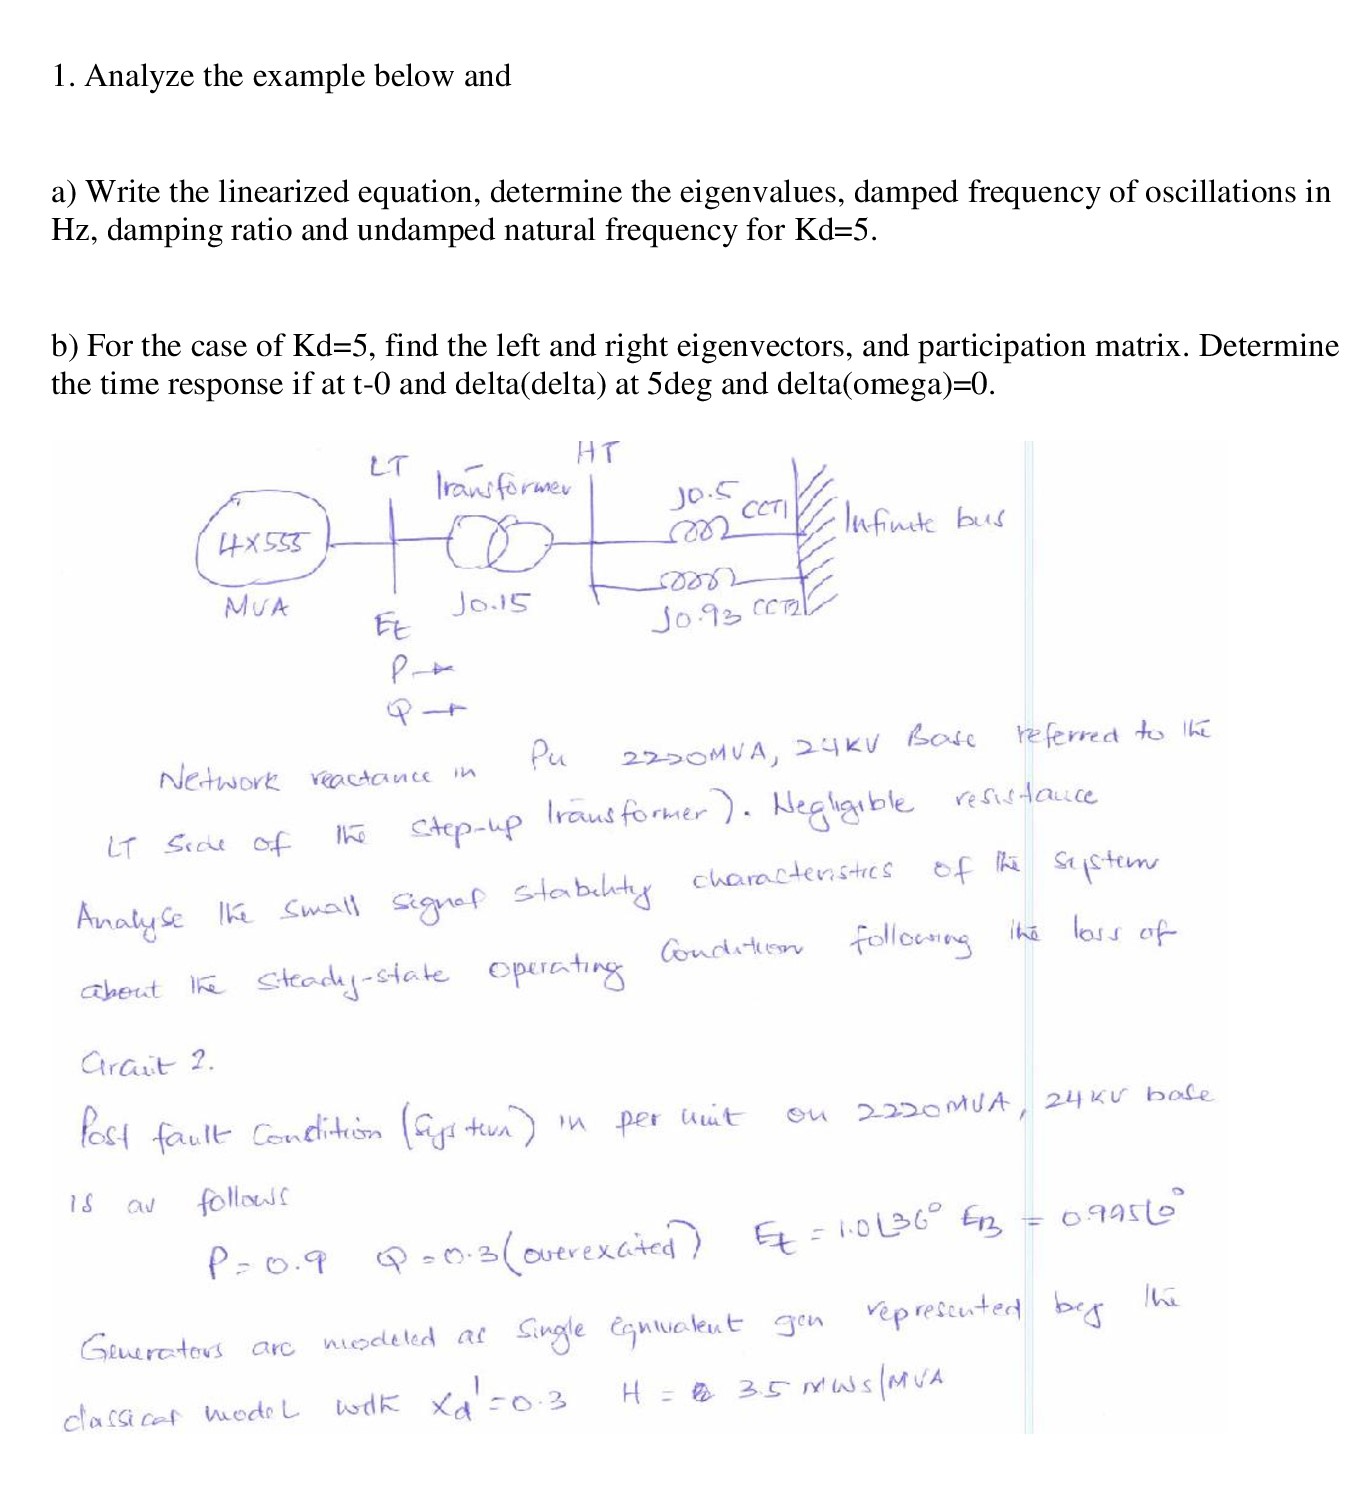 1. Analyze the example below and
a) Write the linearized equation, determine the eigenvalues, damped frequency of oscillations in
Hz, damping ratio and undamped natural frequency for Kd=5.
b) For the case of Kd=5, find the left and right eigenvectors, and participation matrix. Determine
the time response if at t-0 and delta(delta) at 5deg and delta(omega)=0.
LT
Transformer
HT
J0.5
CCT1
Infinite bus
4x555
MVA
J0.15
J0.93 CCT2
Et
P→
Q→
Network reactance in Pu 2220MVA, 24KV Base referred to the
LT side of the step-up transformer). Negligible resistance
Analyse the small signal stability characteristics of the system
about the steady-state operating Condition following the loss of
Circuit 2.
Post fault Condition (System) in per unit on 2220MVA, 24KV base
is as follows
P=0.9 Q=0.3(overexcited) Et = 1.0∠36° EB = 0.995∠0°
Generators are modeled as single equivalent gen represented by the
classical model with Xd'=0.3 H = 3.5 MWS/MVA